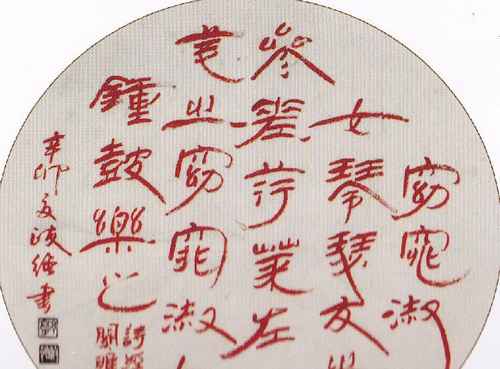 窈窕淑
女琴瑟友之
參差荇菜左
芼之窈窕淑
鍾鼓樂之
詩經
關雎
辛卯夏書